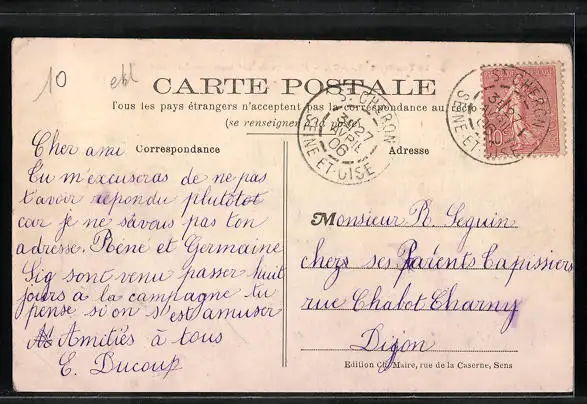 10 ebl
CARTE POSTALE
Tous les pays étrangers n'acceptent pas la correspondance au recto
(se renseigner à la poste)
Correspondance
Adresse
ST CHERON
27
AVRIL
06
SEINE-ET-OISE
ST CHERON
SEINE-ET-
10
Cher ami
Tu m'excuseras de ne pas
t'avoir répondu plutôtot
car je ne savais pas ton
adresse. René et Germaine
Sig sont venu passer huit
jours à la campagne tu
pense si on s'est amuser
Amitiés à tous
E. Ducoup
Monsieur R Seguin
chez ses Parents Tapissiers
rue Chabot Charny
Dijon
Edition Ch. Maire, rue de la Caserne, Sens